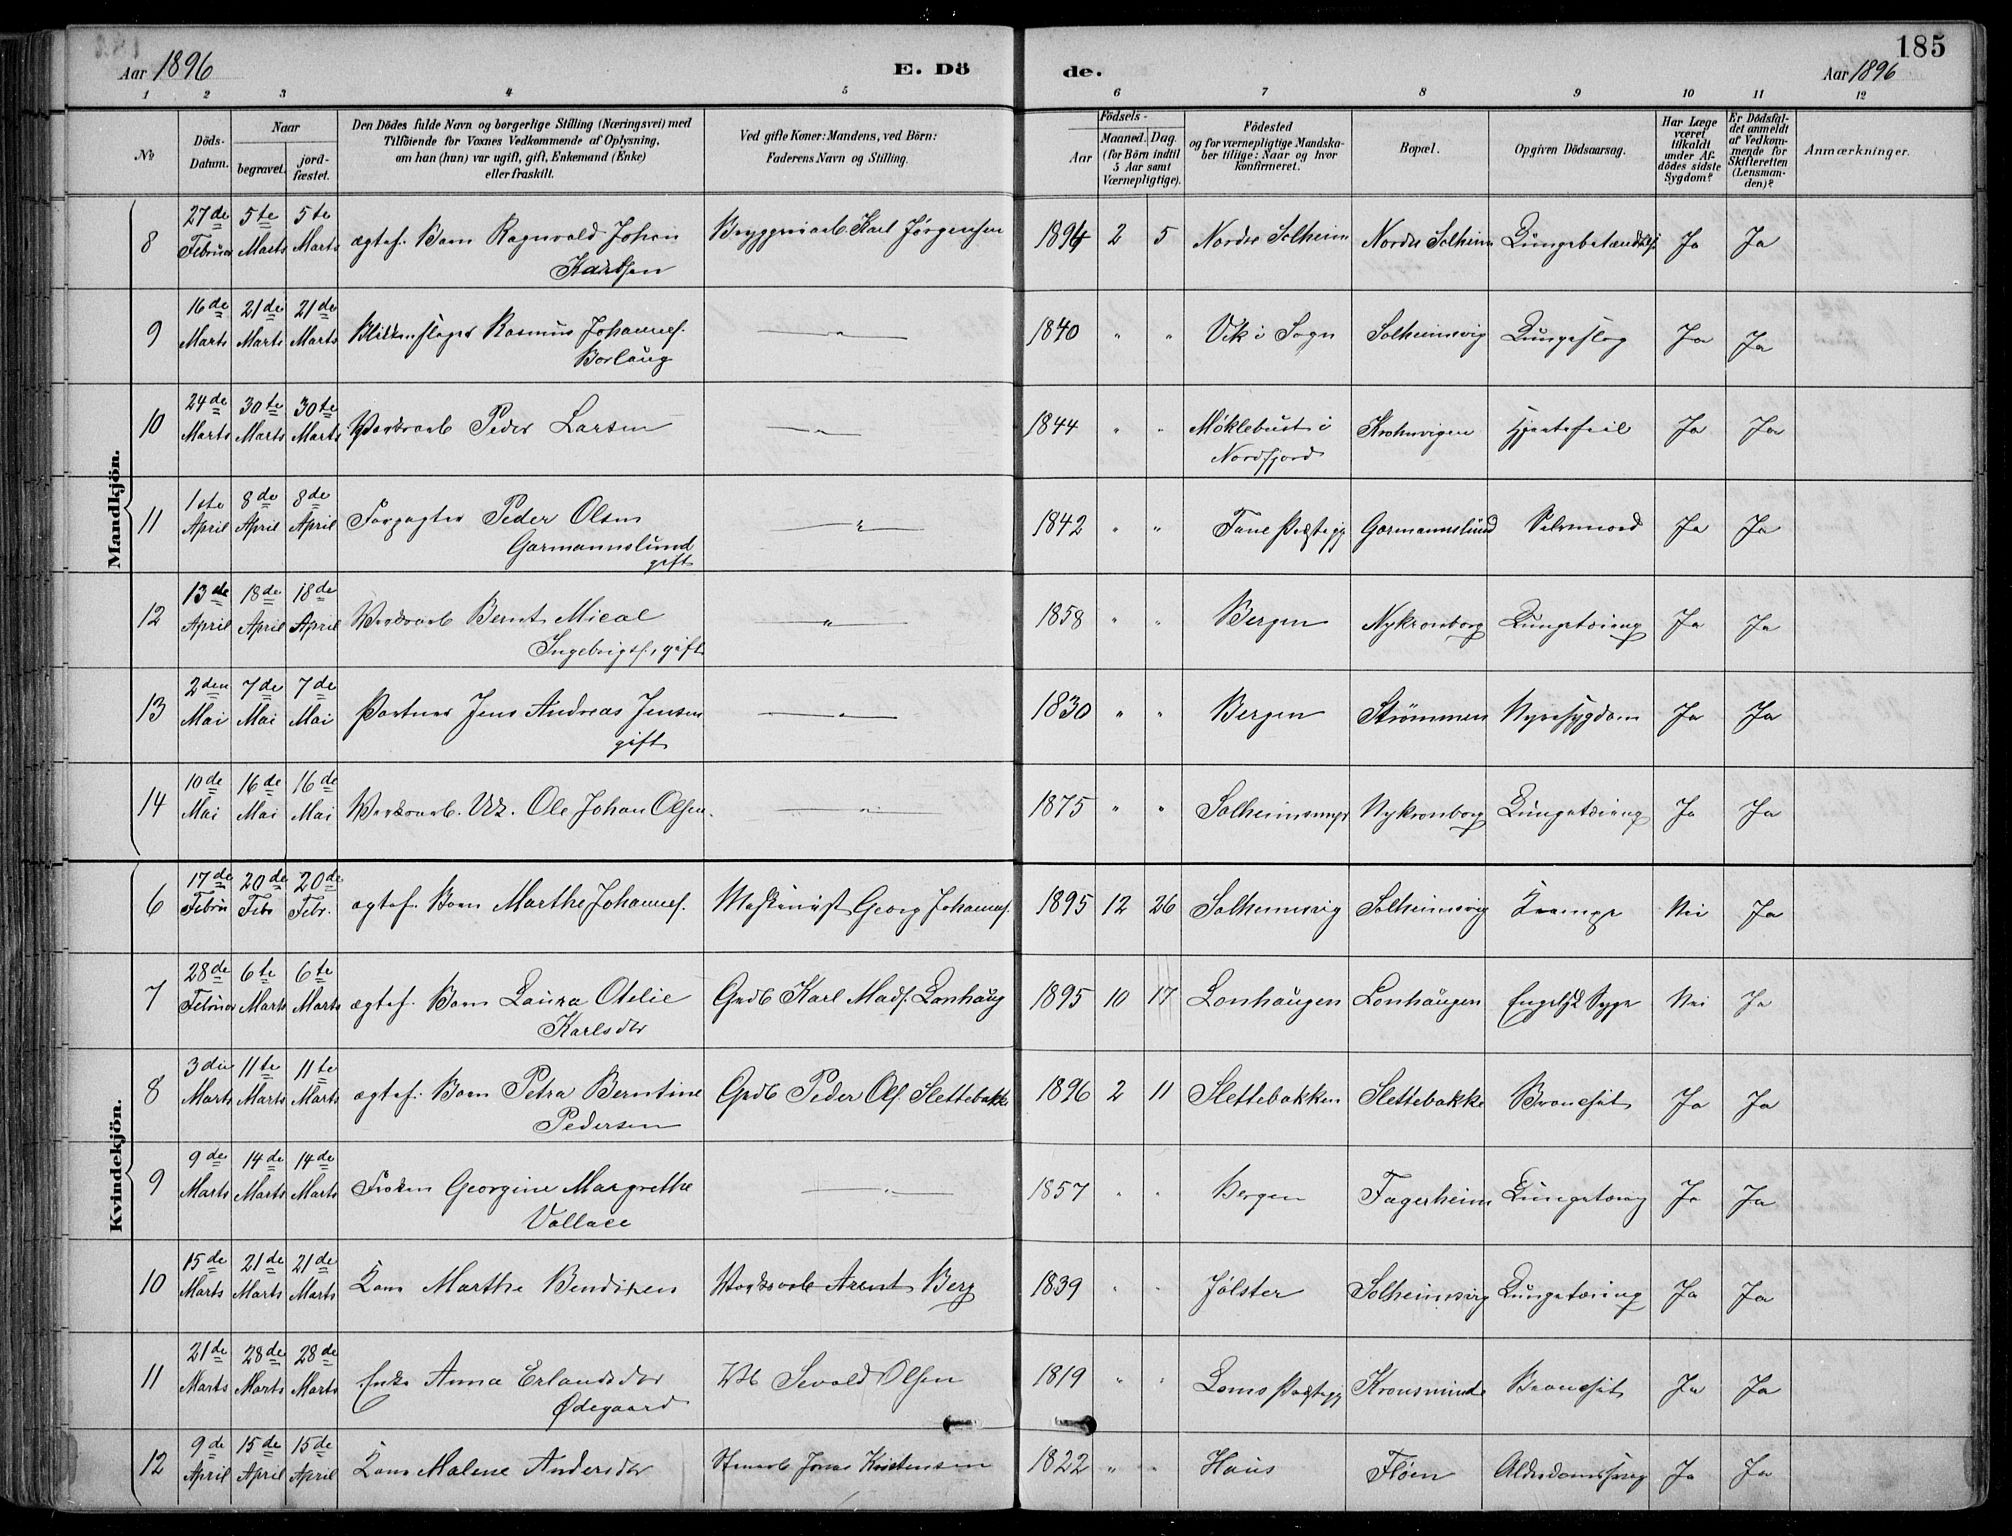 Aar 1896 E. Dö de. Aar 1896 185
1 2 3 4 5 6 7 8 9 10 11 12
№ Döds-Datum. Naar begravet. jordfæstet. Den Dödes fulde Navn og borgerlige Stilling (Næringsvei) med Tilföiende for Voxnes Vedkommende af Oplysning, om han (hun) var ugift, gift, Enkemand (Enke) eller fraskilt. Ved gifte Koner: Mandens, ved Börn: Faderens Navn og Stilling. Födsels- Aar Maaned. Dag. (for Börn indtil 5 Aar samt Værnepligtige). Födested og for værnepligtige Mandskaber tillige: Naar og hvor konfirmeret. Bopæl. Opgiven Dödsaarsag. Har Læge været tilkaldt under Afdödes sidste Sygdom? Er Dödsfaldet anmeldt af Vedkommende for Skifteretten (Lensmanden)? Anmærkninger.
Mandkjön.
8 27de Februar 5te Marts 5te Marts ægtef. Barn Ragnvald Johan Karlsen Bryggeriarb. Karl Jørgensen 1894 2 5 Nordre Solheim Nordre Solheim Lungebetændelse Ja Ja
9 16de Marts 21de Marts 21de Marts Blikkenslager Rasmus Johannes. Borlaug " 1840 " " Vik i Sogn Solheimsvig Lungeslag Ja Ja
10 24de Marts 30te Marts 30te Marts Værksarb Peder Larsen " 1844 " " Møklebust i Nordfjord Krohnvigen Hjertefeil Ja Ja
11 1ste April 8de April 8de April Forpagter Peder Olsen Garmannslund gift " 1842 " " Fane Præstegj Garmannslund Selvmord Ja Ja
12 13de April 18de April 18de April Værksarb Bernt Mical Ingebrigts., gift " 1858 " " Bergen Nykronborg Lungetæring Ja Ja
13 2den Mai 7de Mai 7de Mai Portner Jens Andreas Jensen gift " 1830 " " Bergen Strømmen Nyresygdom Ja Ja
14 10de Mai 16de Mai 16de Mai Værksarb. Ole Johan Olsen. " 1875 " " Solheimsvig Nykronborg Lungetæring Ja Ja
Kvindekjön.
6 17de Febru 20de Febr 20de Febr. ægtef. Barn Marthe Johannes. Maskinist Georg Johannes. 1895 12 26 Solheimsvig Solheimsvig Krampe Nei Ja
7 28de Februar 6te Marts 6te Marts ægtef. Barn Laura Otelie Karlsdtr Grdb Karl Mads. Lonhaug 1895 10 17 Lonhaugen Lonhaugen Engelsk Syge Nei Ja
8 3die Marts 11te Marts 11te Marts ægtef. Barn Petra Berntine Pedersen Grdb Peder Ols. Slettebakke 1896 2 11 Slettebakken Slettebakke Bronchit Ja Ja
9 9de Marts 14de Marts 14de Marts Frøken Georgine Margrethe Vallace " 1857 " " Bergen Fagerheim Lungetæring Ja Ja
10 15de Marts 21de Marts 21de Marts Kone Marthe Bendixen Værksarb Arent Berg 1839 " " Jølster Solheimsvig Lungetæring Ja Ja
11 21de Marts 28de Marts 28de Marts Enke Anna Erlandsdtr Ødegaard Sevald Olsen 1819 " " Loms Præstegj Kronsminde Bronchit Ja Ja
12 9de April 15de April 15de April Kone Malene Andersdtr Jonas Kristensen 1822 " " Haus Fløen Alderdomssvag Ja Ja